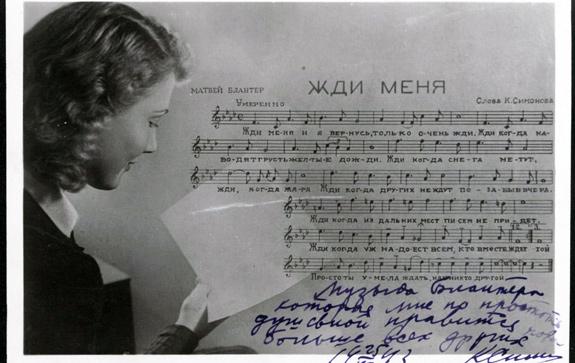 МАТВЕЙ БЛАНТЕР
ЖДИ МЕНЯ
Слова К. Симонова
Умеренно
Жди ме-ня и я вер-нусь, только о-чень жди. Жди ког-да на-
во-дят грусть желты-е дож-ди. Жди ког-да сне-га ме-тут,
жди, ког-да жа-ра Жди ког-да других не ждут по-за-быв вчера.
Жди ког-да из дальних мест писем не при-дет,
Жди когда уж на-до-ест всем, кто вместе ждет той
Просто ты у-ме-ла ждать, как никто другой
Музыка Блантера
которая мне по простоте
душевной нравится
больше всех других
1943